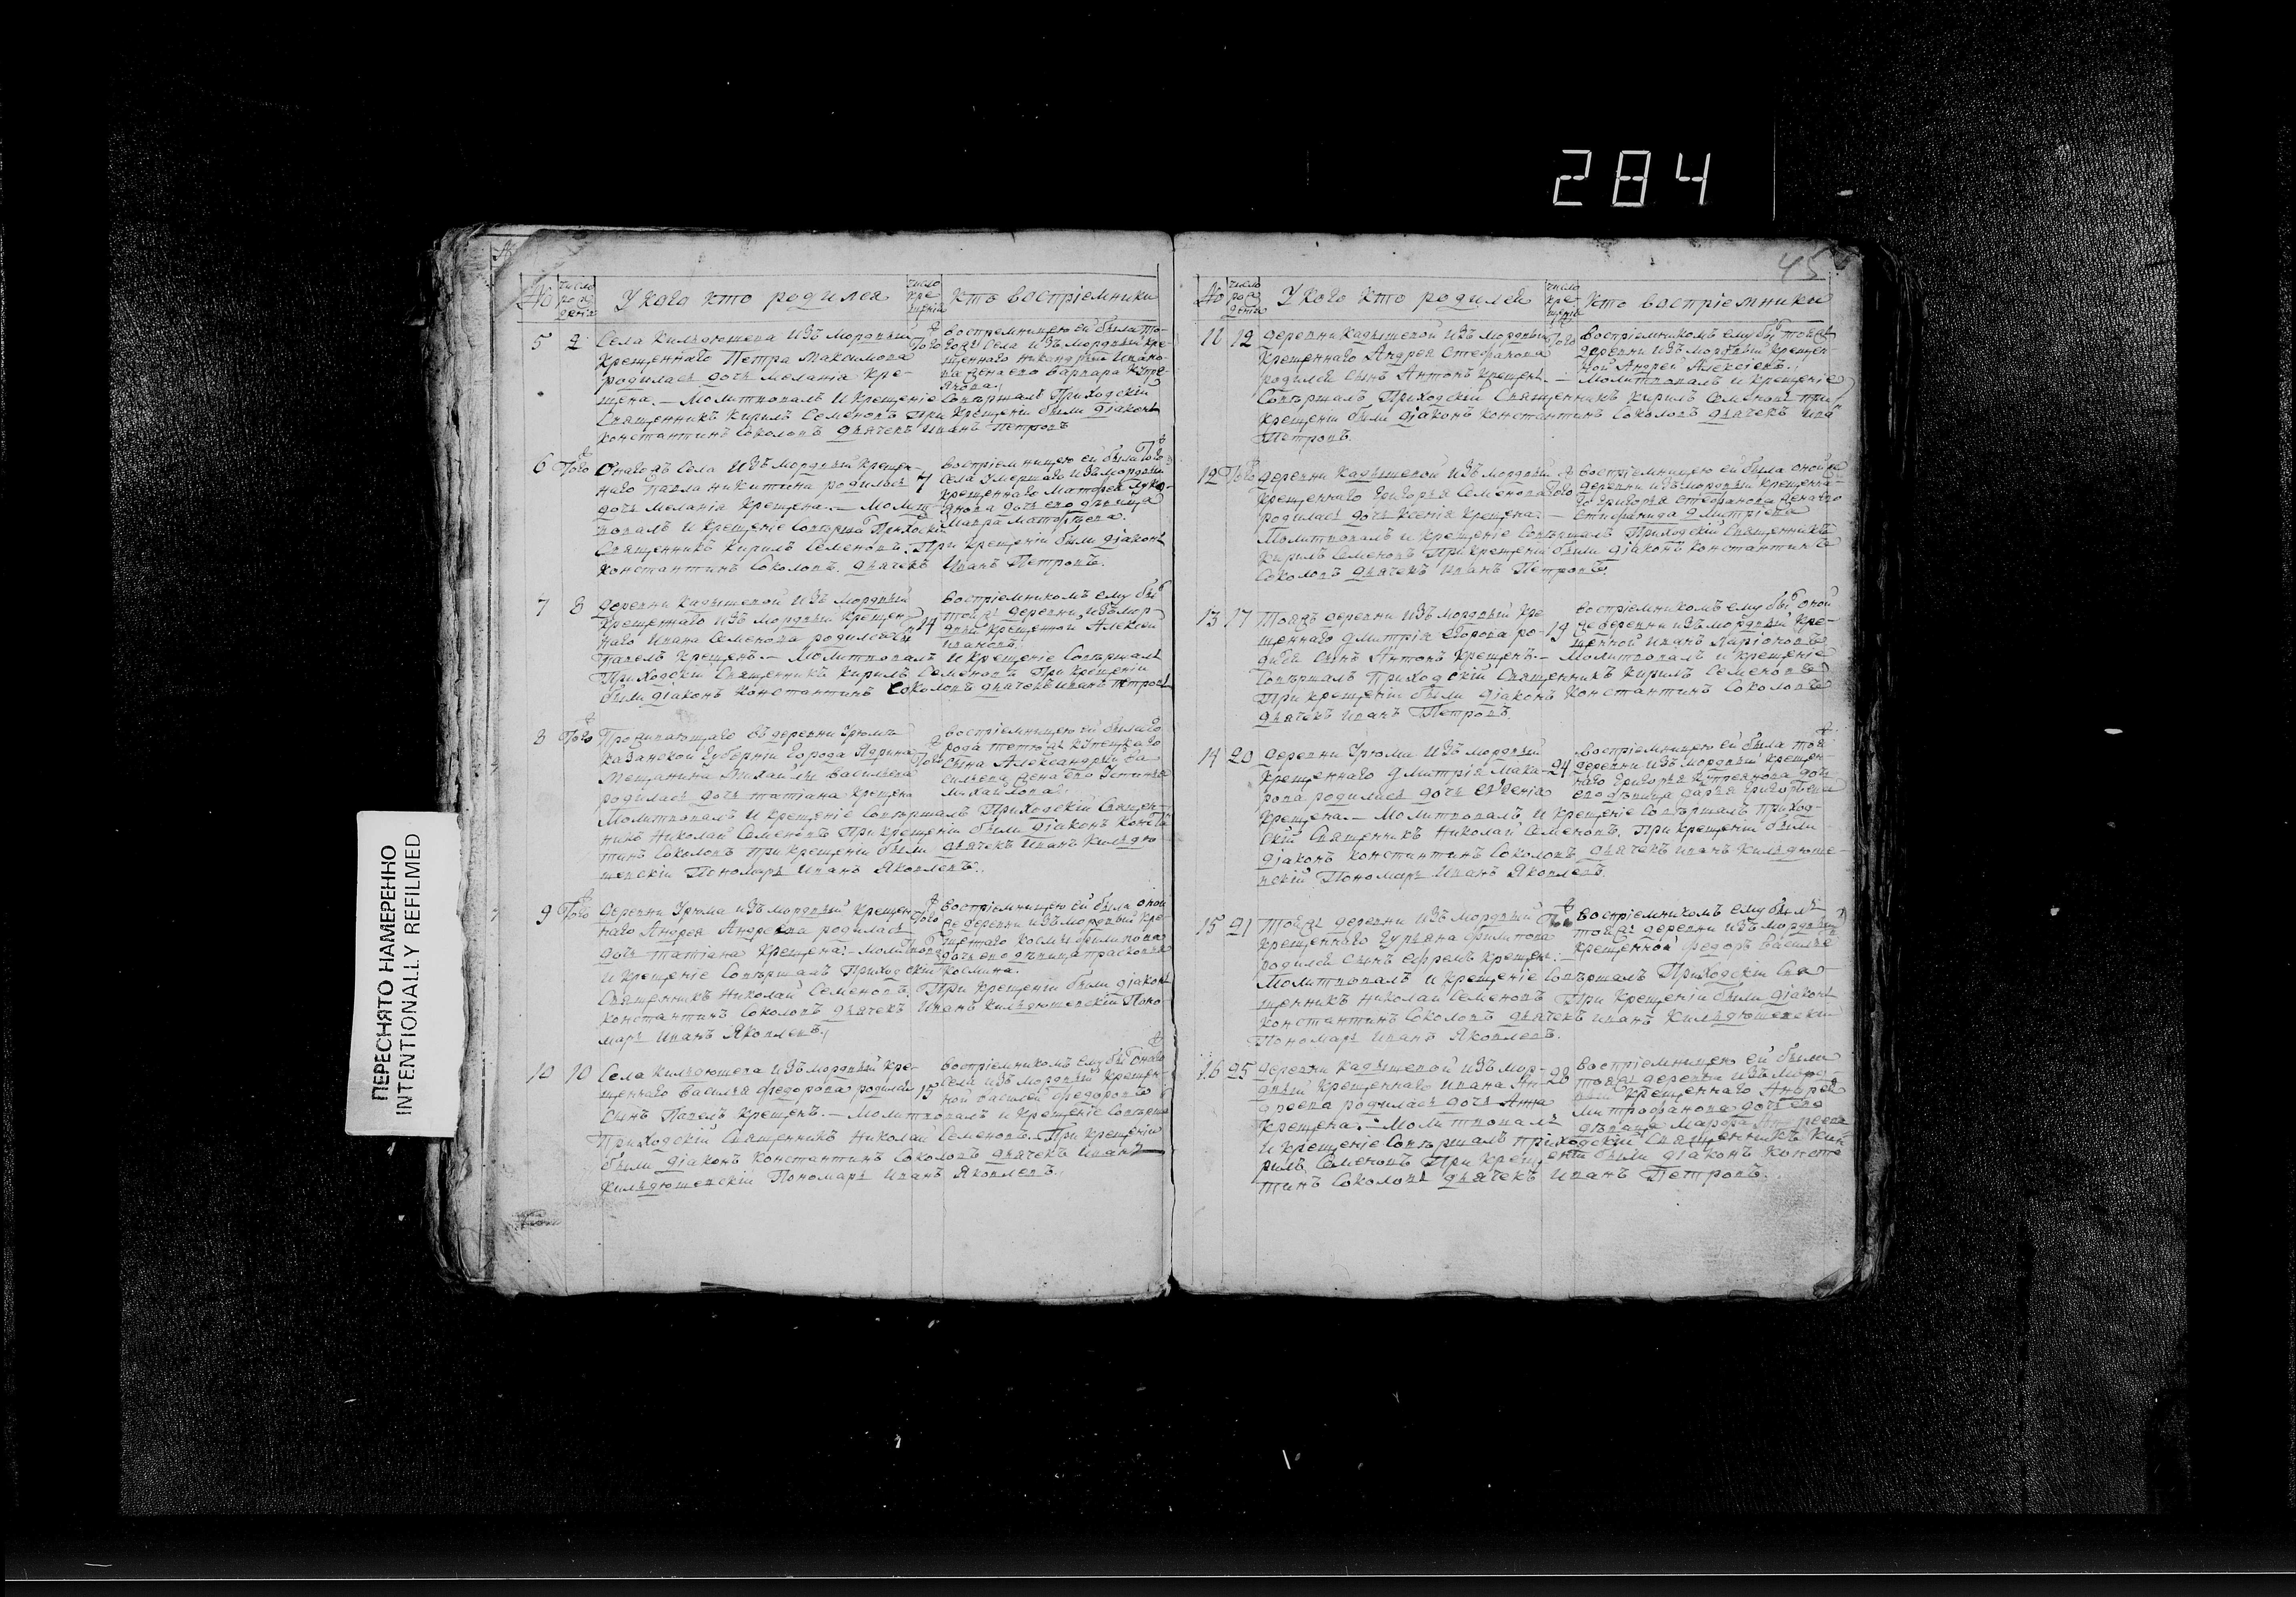 284
45
ПЕРЕСНЯТО НАМЕРЕННО
INTENTIONALLY REFILMED
№ число рождения У кого кто родился число крещенія Кто воспріемники
5 2 Села Кильдюшева изъ мордвы
крещеннаго Петра Максимова
родилась дочь Меланія кре-
щена. — Молитвовалъ и крещеніе совершалъ Приходскій
Священникъ Кирилъ Семеновъ при крещеніи были діаконъ
Константинъ Соколовъ дьячекъ Иванъ Петровъ
Того
воспріемницею ей была то-
гожъ села изъ мордвы кре-
щеннаго
жена его Варвара
6 Того Села изъ мордвы крещен-
наго Павла Никитина родилась
дочь Меланія крещена. — Молит-
вовалъ и крещеніе Приходскій
Священникъ Кирилъ Семеновъ. При крещеніи были діаконъ
Константинъ Соколовъ. дьячекъ Иванъ Петровъ.
7
воспріемницею ей была Того
села умершаго изъ мордвы
крещеннаго
дочь его дѣвица
Мавра
7 8 деревни Кадышевой изъ мордвы
крещеннаго изъ мордвы крещен-
наго Ивана Семенова родился
Павелъ крещенъ. — Молитвовалъ и крещеніе совершалъ
Приходскій Священникъ Кирилъ Семеновъ При крещеніи
были діаконъ Константинъ Соколовъ дьячекъ Иванъ Петровъ
14
воспріемникомъ ему
деревни изъ мор-
двы крещенной Алексей
Ивановъ.
8 Того Проживающаго въ деревни Урюмъ
Казанской Губерніи города Ядрина
Мещанина Михайлы Васильева
родилась дочь Татіана крещена
Молитвовалъ и крещеніе совершалъ Приходскій Священ-
никъ Николай Семеновъ При крещеніи были діаконъ
тинъ Соколовъ при крещеніи были дьячекъ Иванъ Кильдю-
шевскій Пономарь Иванъ Яковлевъ.
Того
воспріемницею ей была го-
рода
сына Александры Ва-
сильева жена его
Михайлова.
9 Того деревни Урюма изъ мордвы крещен-
наго Андрея Андреева родилась
дочь Татіана крещена.
и крещеніе совершалъ Приходскій
Священникъ Николай Семеновъ. При крещеніи были діаконъ
Константинъ Соколовъ дьячекъ Иванъ Кильдюшевскій Поно
марь Иванъ Яковлевъ.
Того
воспріемницею ей была оной
же деревни изъ мордвы кре-
щеннаго Космы Филипова
дочь его дѣвица
Космина.
10 10 Села Кильдюшева изъ мордвы кре-
щеннаго Василья Федорова родился
сынъ Павелъ крещенъ. — Молитвовалъ и крещеніе
Приходскій Священникъ Николай Семеновъ. При крещеніи
были діаконъ Константинъ Соколовъ дьячекъ Иванъ
Кильдюшевскій Пономарь Иванъ Яковлевъ.
15
воспріемникомъ ему
села изъ мордвы крещен-
ной Василей Федоровъ
№ число рожденія У кого кто родился число крещенія Кто воспріемники
11 12 деревни Кадышевой изъ мордвы
крещеннаго Андрея Стефанова
родился сынъ Антонъ крещенъ. —
Совершалъ Приходскій Священникъ Кирилъ Семеновъ при
крещеніи были діаконъ Константинъ Соколовъ дьячекъ
Петровъ.
Того
воспріемникомъ ему
деревни изъ мордвы крещен-
ной Андрей Алексіевъ.
Молитвовалъ и крещеніе
12 Того деревни Кадышевой изъ мордвы
крещеннаго Григорья Семенова
родилась дочь Ксенія крещена. —
Молитвовалъ и крещеніе совершалъ Приходскій Священникъ
Кирилъ Семеновъ При крещеніи были діаконъ Константинъ
Соколовъ дьячекъ Иванъ Петровъ.
Того
воспріемницею ей была оной
деревни изъ мордвы крещенна-
го Григорья Стефанова жена его
Дмитріева
13 17 деревни изъ мордвы кре-
щеннаго Дмитрія Егорова ро-
дился сынъ Антонъ крещенъ. —
Совершалъ Приходскій Священникъ Кирилъ Семеновъ
При крещеніи были діаконъ Константинъ Соколовъ
дьячекъ Иванъ Петровъ.
19
воспріемникомъ ему оной
же деревни изъ мордвы кре-
щенной Иванъ Ларіоновъ
Молитвовалъ и крещеніе
14 20 деревни Урюми изъ мордвы
крещеннаго Дмитрія Мака-
рова родилась дочь
крещена. — Молитвовалъ, и крещеніе совершалъ Приход-
скій Священникъ Николай Семеновъ. При крещеніи были
діаконъ Константинъ Соколовъ дьячекъ Иванъ Кильдюше-
вскій Пономарь Иванъ Яковлевъ.
24
воспріемницею ей была
деревни изъ мордвы крещен-
наго Григорья дочь
его дѣвица Дарья Григорьева
15 21 деревни изъ мордвы
крещеннаго Гурьяна Филипова
родился сынъ Ефремъ крещенъ. —
Молитвовалъ и крещеніе совершалъ Приходскій Свя-
щенникъ Николай Семеновъ При крещеніи были діаконъ
Константинъ Соколовъ дьячекъ Иванъ Кильдюшевскій
Пономарь Иванъ Яковлевъ.
воспріемникомъ ему былъ
деревни изъ мордвы
крещенной Федоръ
16 25 деревни Кадышевой изъ мор-
двы крещеннаго Ивана Ан-
дреева родилась дочь Анна
крещена. — Молитвовалъ
и крещеніе совершалъ Приходскій Священникъ Ки-
рилъ Семеновъ При крещеніи были діаконъ
тинъ Соколовъ дьячекъ Иванъ Петровъ.
28
воспріемницею ей была
деревни изъ морд-
вы крещеннаго Андрея
Митрофанова дочь его
дѣвица Марфа